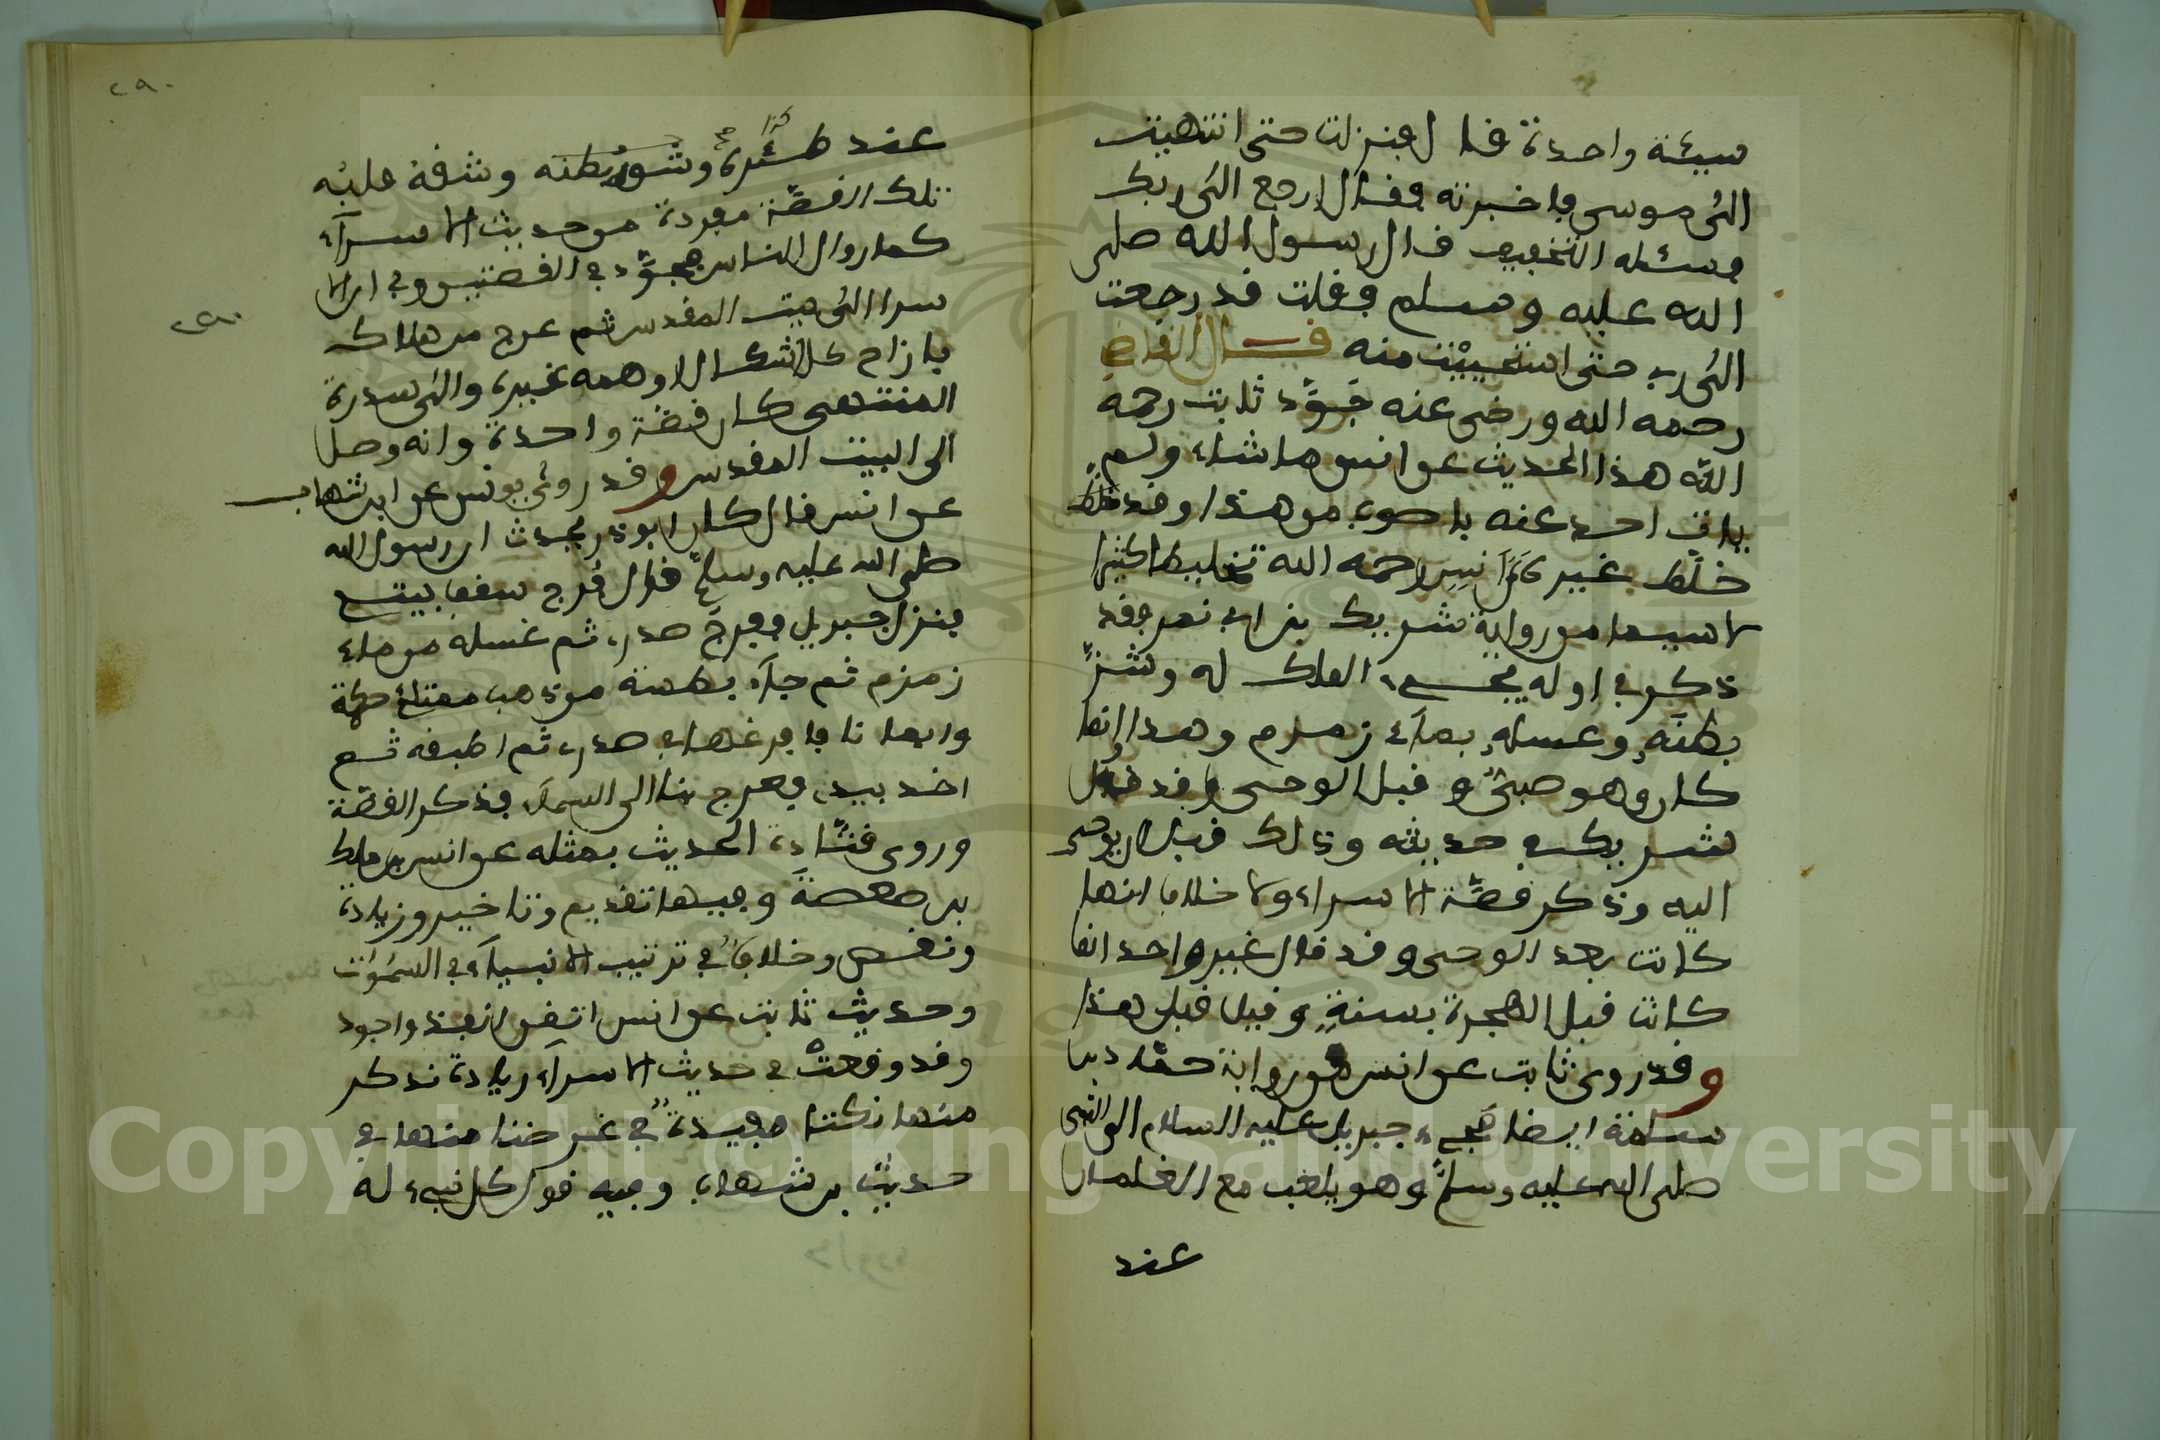 سيئة واحدة قال فنزلت حتى انتهيت
الى موسى فاخبرته فقال ارجع الى ربك
فسئله التخفيف قال رسول الله صلى
الله عليه وسلم فقلت قد رجعت
الى ربي حتى استحييت منه قال القاضي
رحمه الله ورضى عنه جوّد ثابت رحمه
الله هذا الحديث عن انس ما شاء ولم
يات احد عنه باصوب من هذا وقد خلط
خلّط غيره عن انس رحمه الله تخليطا كثيرا
لاسيما من رواية شريك بن ابي نمر فقد
ذكر في اوله مجيء الملك له وشقّ
بطنه وغسله بماء زمزم وهذا انما
كان وهو صبي و قبل الوحى وقد قال
شريك في حديثه وذلك قبل ان يوحى
اليه وذكر قصّة الاسراء ولا خلاف انها
كانت بعد الوحى وقد قال غير واحد انها
كانت قبل الهجرة بسنة وقيل قبل هذا
وقد روى ثابت عن انس من رواية حمّاد بن
سلمة ايضا مجيء جبريل عليه السلام الى النبي
صلى الله عليه وسلم وهو يلعب مع الغلمان
عند
٢٩٠
عند ظئره وشق بطنه وشقه قلبه
تلك القصّة مفردة من حديث الاسراء
كما رواه الناس فجوّد في القصتين وفي ان الا
سرا الى بيت المقدس ثم عرج من هناك
فازاح كل اشكال اوهمه غيره والى سدرة
المنتهى كان قصّة واحدة وانه وصل
الى البيت المقدس وقد روى يونس عن ابن شهاب
عن انس قال كان ابو ذر يحدث ان رسول الله
صلى الله عليه وسلم قال فرج سقف بيتي
فنزل جبريل ففرج صدري ثم غسله من ماء
زمزم ثم جاء بطست من ذهب ممتلئ حكمة
وايمانا فافرغها في صدري ثم اطبقه ثم
اخذ بيدي فعرج بنا الى السماء فذكر القصّة
وروى قتادة الحديث بمثله عن انس عن ملك
بن صعصعة وفيها تقديم وتاخير وزيادة
ونقص وخلاف في ترتيب الانبياء في السموت
وحديث ثابت عن انس اتقن انفذ واجود
وقد وقعت في حديث الاسراء زيادة نذكر
منها نكتا مفيدة في غرضنا منها في
حديث بن شهاب وفيه قول كل نبيء له
٢٩٠